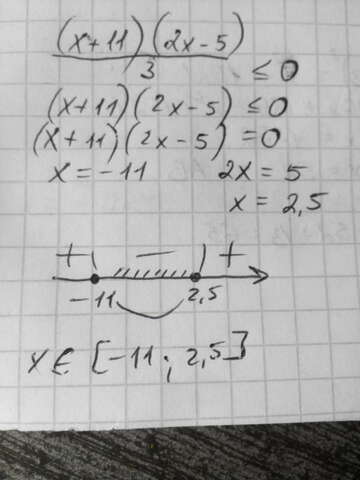 (x+11)(2x-5)
3 ≤ 0
(x+11)(2x-5) ≤ 0
(x+11)(2x-5) = 0
x = -11 2x = 5
x = 2,5
+ - +
-11 2,5
x ∈ [-11; 2,5]